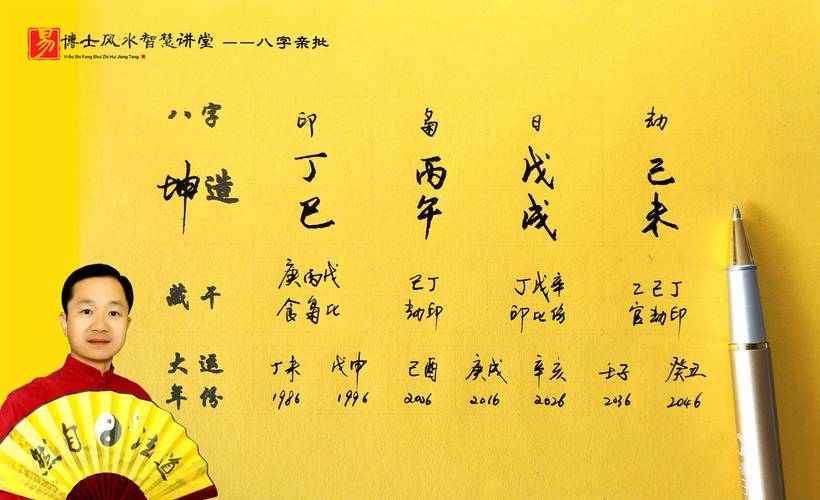 易 博士风水智慧讲堂 ——八字亲批
Yi Bo Shi Feng Shui Zhi Hui Jiang Tang
八字 印 枭 日 劫
坤造 丁 丙 戊 己
巳 午 戌 未
藏干 庚丙戊 己丁 丁戊辛 乙己丁
食枭比 劫印 印比伤 官劫印
大运 丁未 戊申 己酉 庚戌 辛亥 壬子 癸丑
年份 1986 1996 2006 2016 2026 2036 2046
然自法道